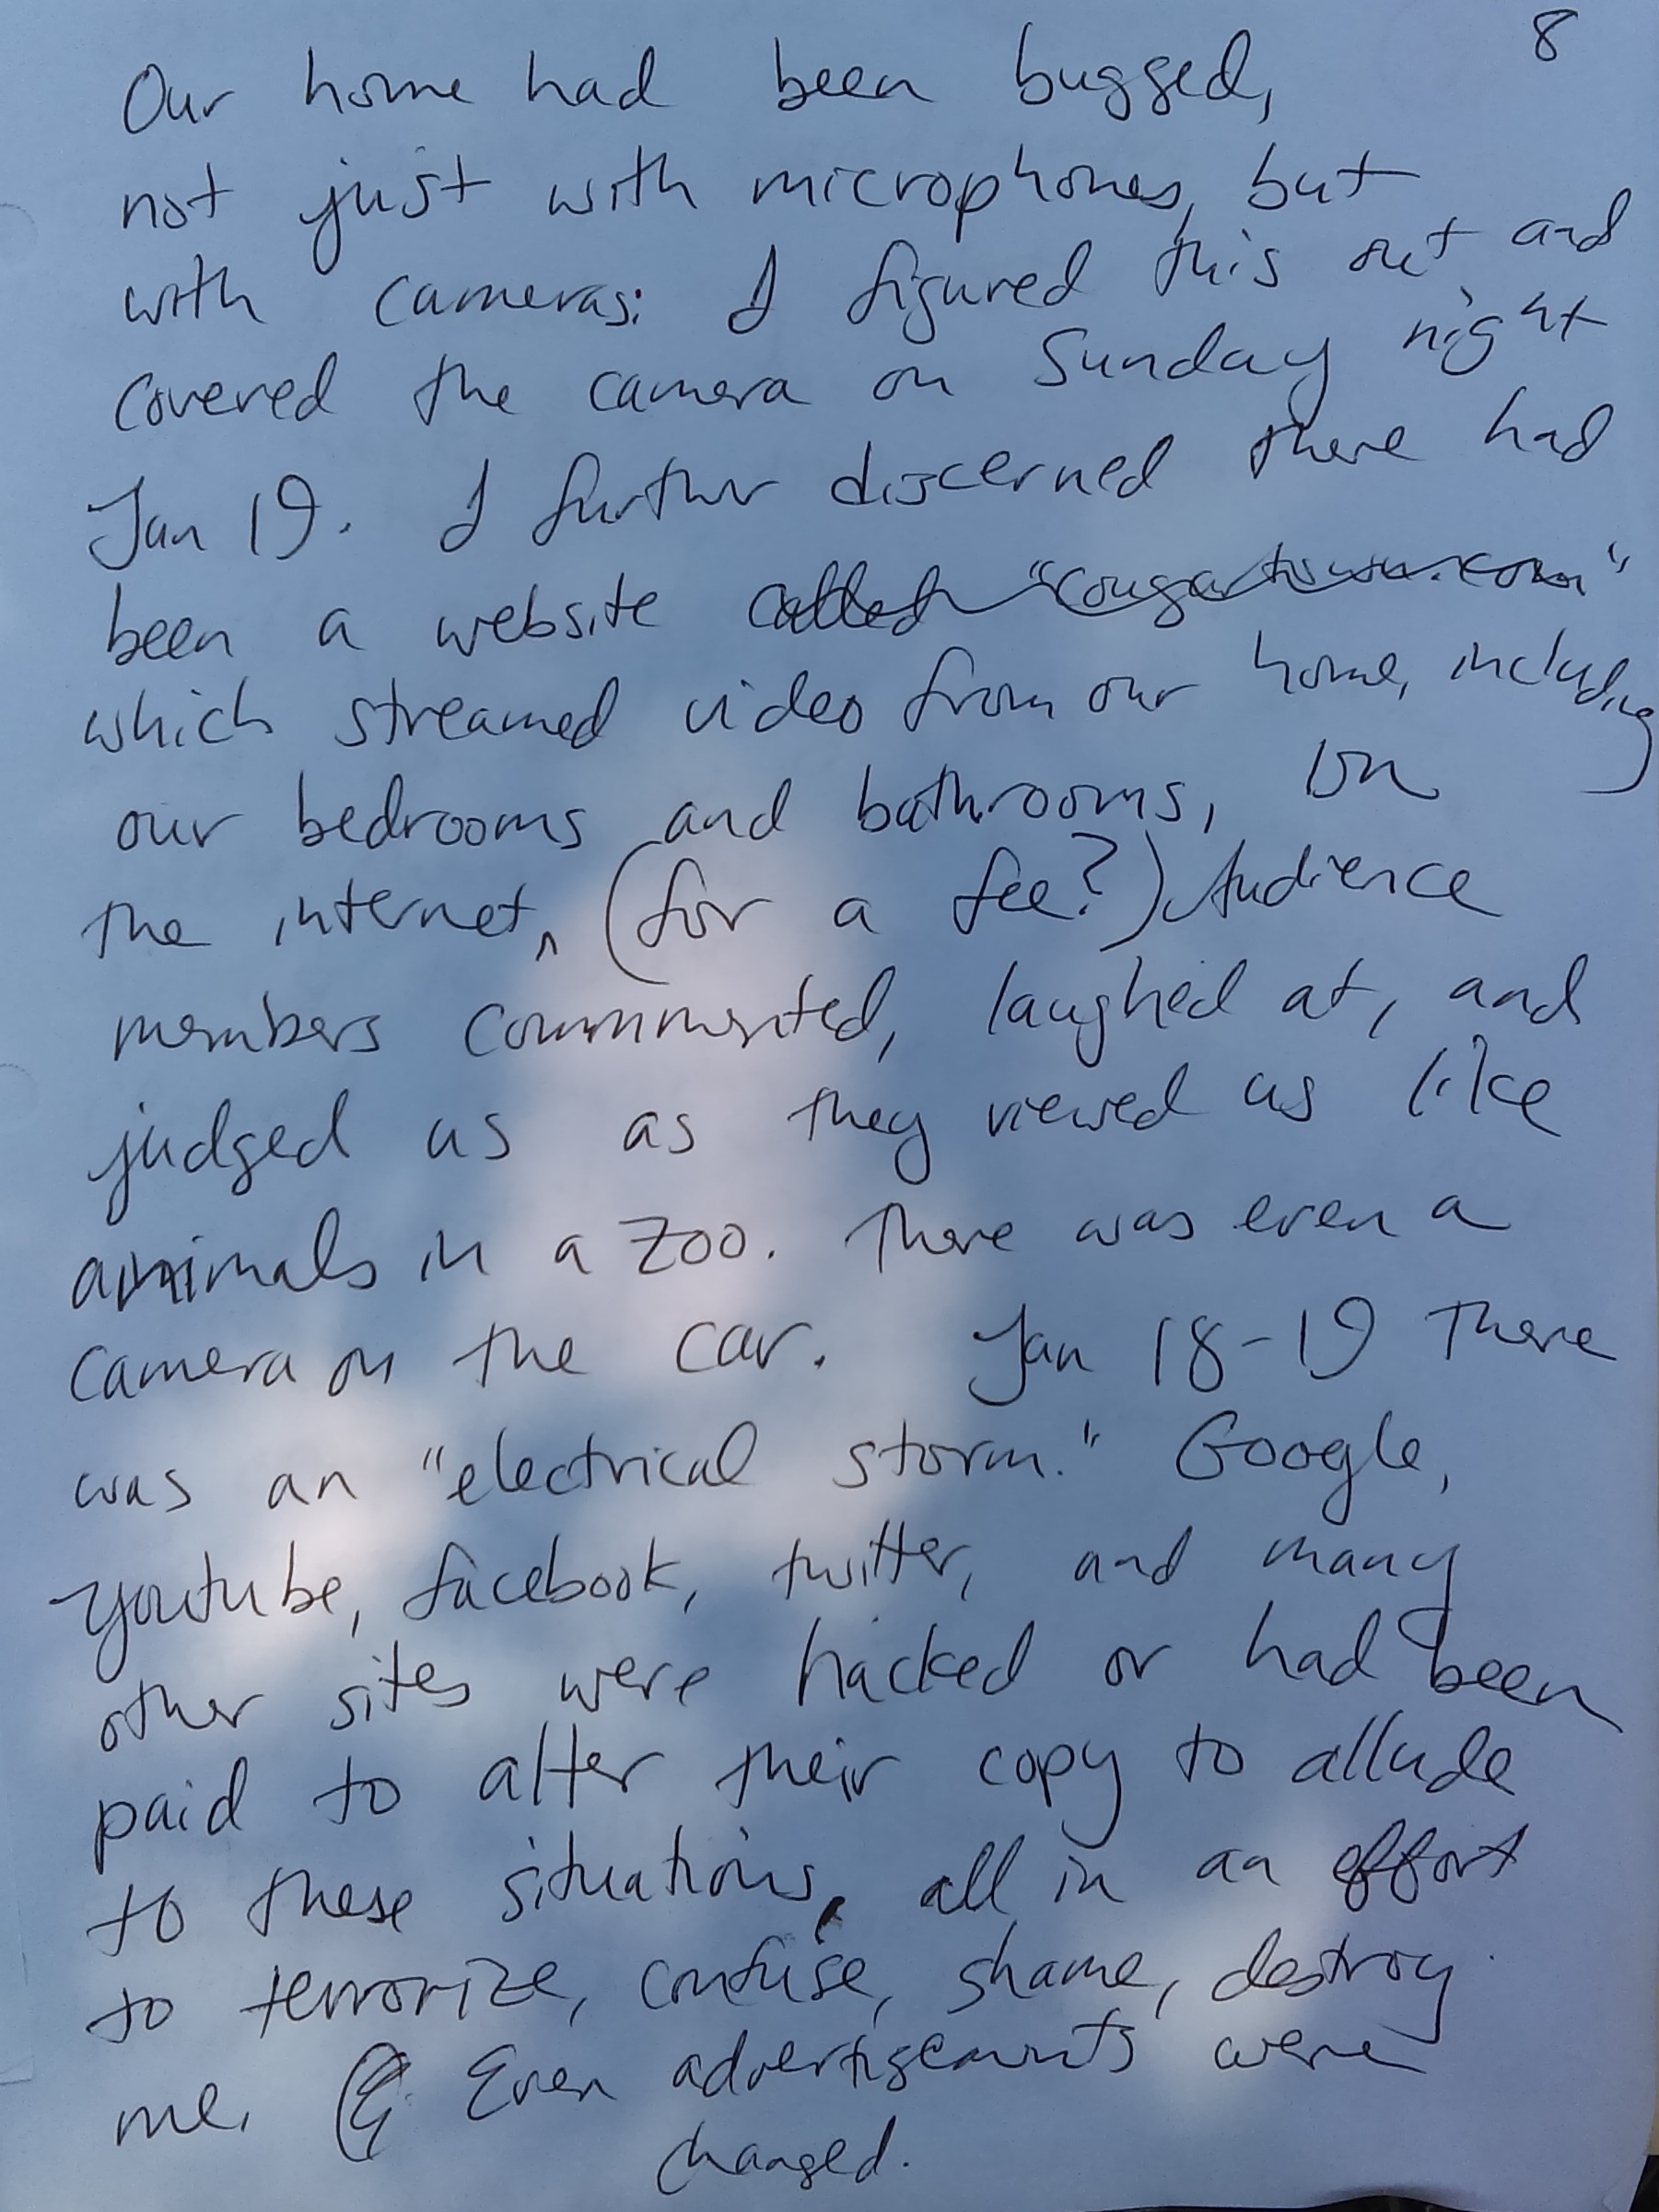 8
Our home had been bugged,
not just with microphones, but
with cameras: I figured this out and
covered the camera on Sunday night
Jan 19. I further discerned there had
been a website called "cougartown.com"
which streamed video from our home, including
our bedrooms and bathrooms, on
the internet, (for a fee?) Audience
members commmented, laughed at, and
judged us as they viewed us like
animals in a zoo. There was even a
camera on the car. Jan 18-19 There
was an "electrical storm." Google,
Youtube, facebook, twitter, and many
other sites were hacked or had been
paid to alter their copy to allude
to these situations, all in an effort
to terrorize, confuse, shame, destroy
me. Even advertisements were
changed.